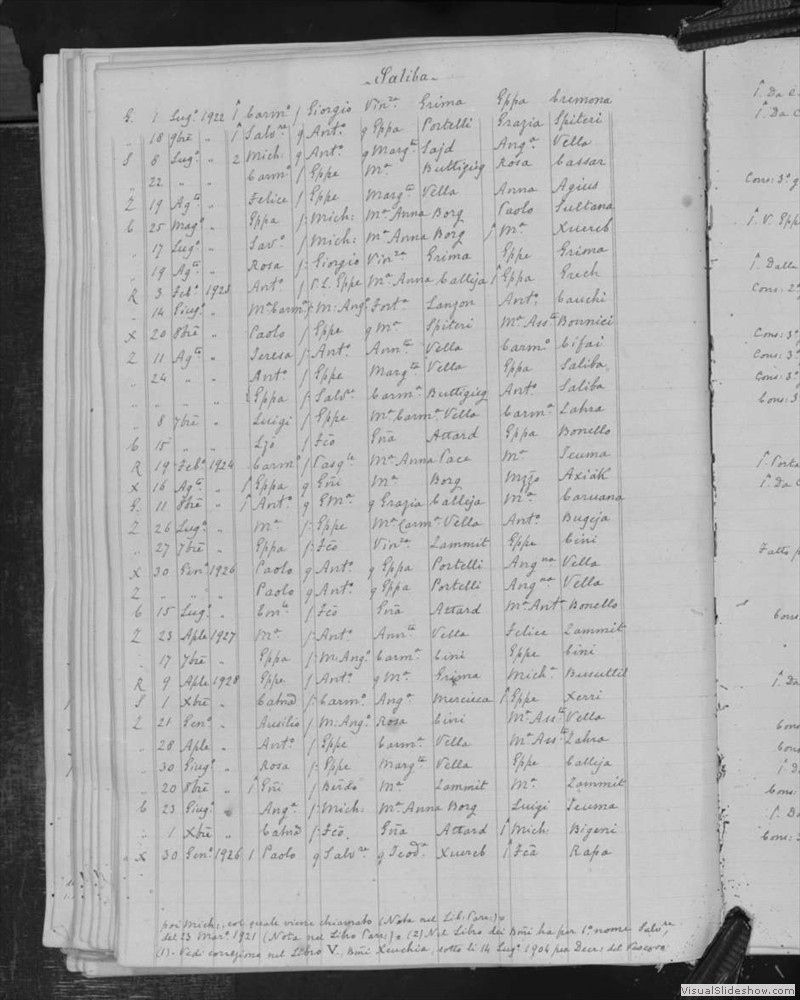 Saliba
G. 1 Lug.º 1922 Carm.º f Giorgio Vin.za Grima Eppa Cremona
" 18 9bre " Salv.re q Ant.º q Eppa Portelli Grazia Spiteri
S 8 Lug.º " 2 Mich: q Ant.º q Marg.ta Sajd Ang.a Vella
" 22 " " Carm.º f Eppe M.a Buttigieg Rosa Cassar
Z 19 Ag.to " Felice f Eppe Marg.ta Vella Anna Agius
C 25 Mag.º " Eppa f. Mich: M.a Anna Borg Paolo Sultana
" 17 Lug.º " Sav.º f Mich: M.a Anna Borg M.a Xuereb
" 19 Ag.to " Rosa f. Giorgio Vin.za Grima Eppe Grima
R 3 Feb.º 1923 Ant.º f P.L. Eppe M.a Anna Calleja Eppa Grech
" 14 Giug.º " M.a Carm.a f. M: Ang.º Fort.a Lanzon Ant.º Cauchi
X 20 8bre " Paolo f Eppe q M.a Spiteri M.a Ass.ta Bonnici
Z 11 Ag.to " Teresa f. Ant.º Ann.ta Vella Carm.º Cifai
" 24 " " Ant.º f Eppe Marg.ta Vella Eppa Saliba
" " " " Eppa f. Salv.re Carm.a Buttigieg Ant.º Saliba
" 8 7bre " Luigi f Eppe M.a Carm.a Vella Carm.a Zahra
C 15 " " Lzo f Fco Gña Attard Eppa Bonello
R 19 Feb.º 1924 Carm.º f Pasq.le M.a Anna Pace M.a Scuma
X 16 Ag.to " Eppa q Gñi M.a Borg Mzzo Axiak
G. 11 8bre " Ant.º q G M.a q Grazia Calleja M.a Caruana
Z 26 Lug.º " M.a f. Eppe M.a Carm.a Vella Ant.º Bugeja
" 27 7bre " Eppa f. Fco Vin.za Zammit Eppe Cini
X 30 Gen.º 1926 Paolo q Ant.º q Eppa Portelli Ang.na Vella
Z " " " Paolo q Ant.º q Eppa Portelli Ang.na Vella
C 15 Lug.º " Em.le f. Fco Gña Attard M.a Ant.a Bonello
Z 23 Aple 1927 M.a f. Ant.º Ann.ta Vella Felice Zammit
" 17 7bre " Eppa f. M: Ang.º Carm.a Cini Eppe Cini
R 9 Aple 1928 Eppe f Ant.º q M.a Grima Mich.a Busuttil
S 1 Xbre " Catnã f. Carm.º Ang.a Mercieca Eppe Xerri
Z 21 Gen.º " Ausilia f. M: Ang.º Rosa Cini M.a Ass.ta Vella
" 28 Aple " Ant.º f. Eppe Carm.a Vella M.a Ass.ta Zahra
" 30 Giug.º " Rosa f. Eppe Marg.ta Vella Eppe Calleja
" 20 8bre " Gñi f Berdo M.a Zammit M.a Zammit
C 23 Giug.º " Ang.a f. Mich: M.a Anna Borg Luigi Scuma
" 1 Xbre " Catnã f. Fco. Gña Attard Mich: Bigeni
X 30 Gen.º 1926 1 Paolo q Salv.re q Teod.a Xuereb Fcã Rapa
poi Mich:, col quale viene chiamato (Nota nel Lib: Parr:)
del 23 Mar.º 1921 (Nota nel Libro Parr:) (2) Nel Libro dei Bñi ha per 1º nome Salv.re
(1) - Vedi correzione nel Libro V. Bñi Xeuchia, sotto li 14 Lug.º 1904 per Decr: del Vescovo.
Cons: 3º g
V. Epp
Dalla
Cons: 2º
Cons: 3º
Cons: 3º
Cons: 3º
Cons: 3º
Porta
Da C
Fatto p
Cons:
Da
Cons:
Cons:
Cons:
Cons: 3
VisualSlideshow.com